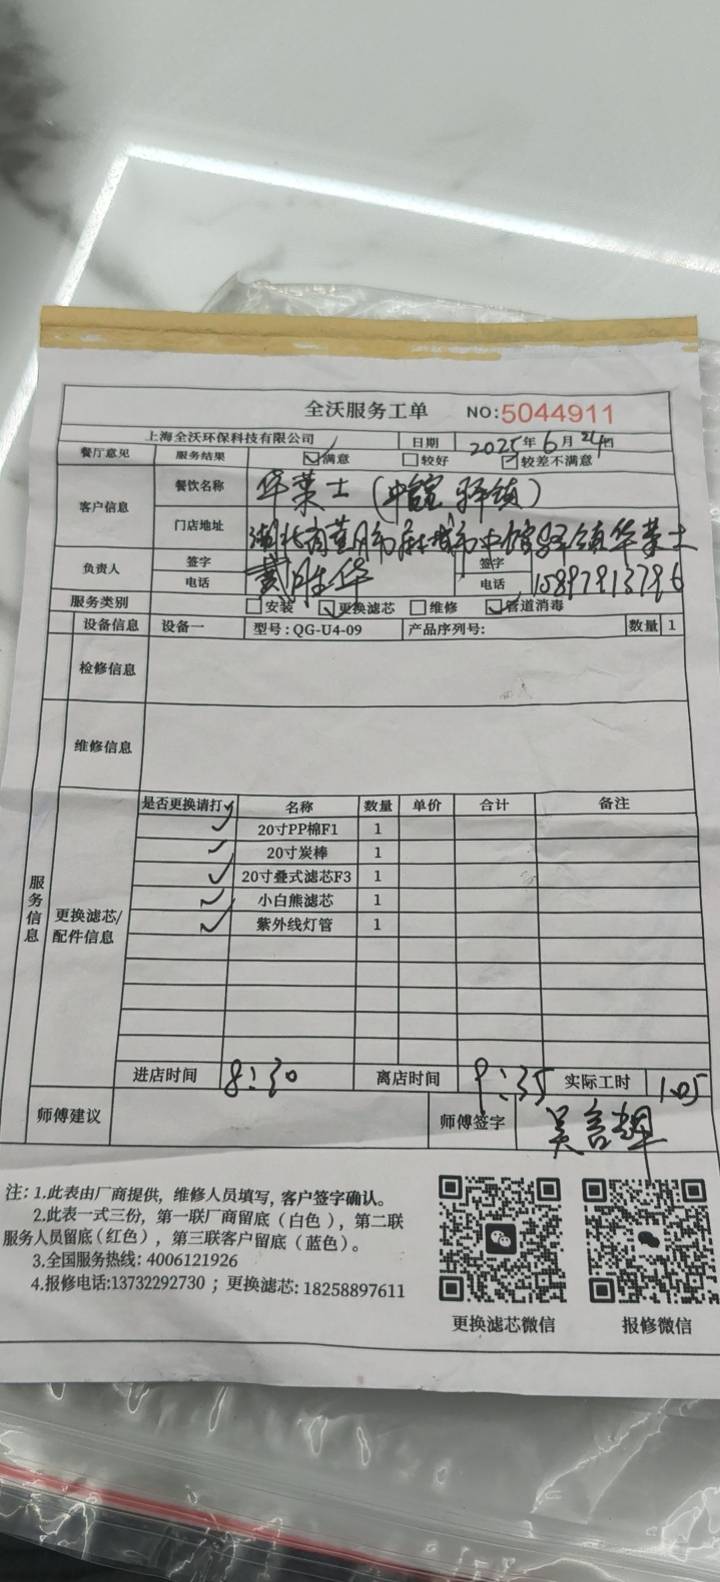 全沃服务工单 NO:5044911
上海全沃环保科技有限公司 日期 2025年6月24日
餐厅意见 服务结果 ☑满意 □较好 ☑较差不满意
客户信息 餐饮名称 华莱士(中馆驿镇)
门店地址 湖北省黄冈市麻城市中馆驿镇华莱士
负责人 签字 戴胜华 签字
电话 电话 15897913796
服务类别 □安装 ☑更换滤芯 □维修 ☑管道消毒
设备信息 设备一 型号:QG-U4-09 产品序列号: 数量 1
检修信息
维修信息
服务信息
更换滤芯/配件信息
是否更换请打✓ 名称 数量 单价 合计 备注
✓ 20寸PP棉F1 1
✓ 20寸炭棒 1
✓ 20寸叠式滤芯F3 1
✓ 小白熊滤芯 1
✓ 紫外线灯管 1
进店时间 8:30 离店时间 9:35 实际工时 1.05
师傅建议 师傅签字 吴言辉
注:1.此表由厂商提供,维修人员填写,客户签字确认。
2.此表一式三份,第一联厂商留底(白色),第二联
服务人员留底(红色),第三联客户留底(蓝色)。
3.全国服务热线:4006121926
4.报修电话:13732292730;更换滤芯:18258897611
更换滤芯微信 报修微信